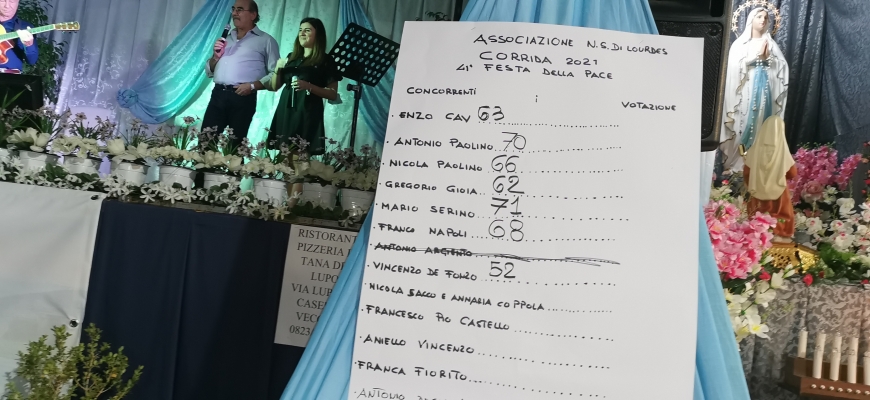 ASSOCIAZIONE N.S. DI LOURDES
CORRIDA 2021
41ª FESTA DELLA PACE
CONCORRENTI
VOTAZIONE
. ENZO CAV 63
. ANTONIO PAOLINO 70
. NICOLA PAOLINO 66
. GREGORIO GIOIA 62
. MARIO SERINO 71
. FRANCO NAPOLI 68
. ANTONIO ARGENTO
. VINCENZO DE FONZO 52
. NICOLA SACCO E ANNARIA COPPOLA
. FRANCESCO PIO CASTELLO
. ANIELLO VINCENZO
. FRANCA FIORITO
. ANTONIO
RISTORANT
PIZZERIA
TANA DE
LUPO
VIA LUP
CASE
VECC
0823